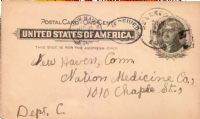 POSTAL CARD ONE CENT.
UNITED STATES OF AMERICA.
THIS SIDE IS FOR THE ADDRESS ONLY.
New Haven, Conn
Nation Medicine Co,
1010 Chaple St,
Dept. C.